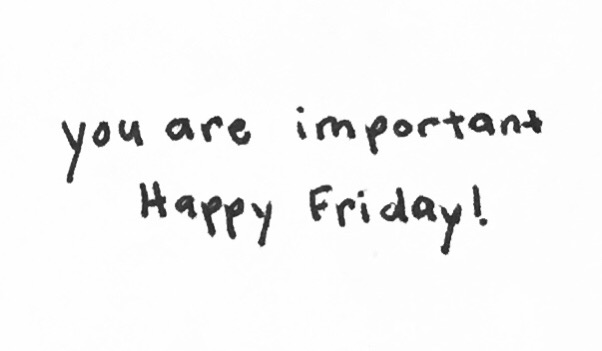 you are important
Happy Friday!